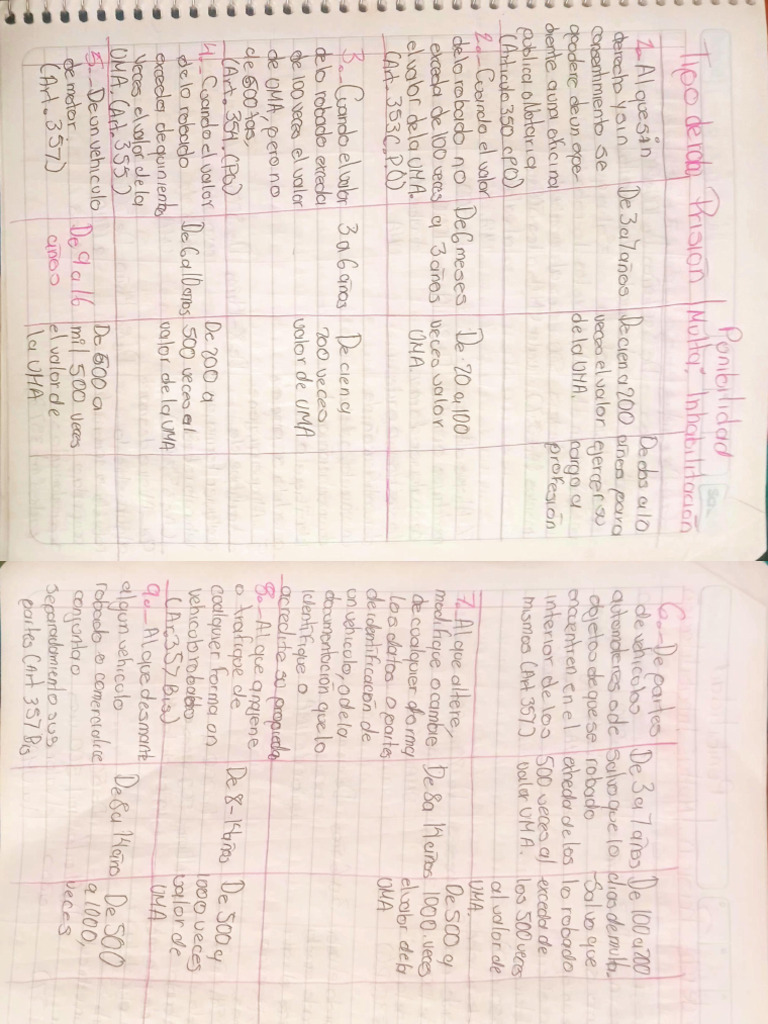 Ponibilidad
Tipo de robo Prisión Multa, Inhabilitación
1.- Al que sin
derecho y sin
consentimiento se
apodere de un expe-
diente a una oficina
publica o Notaria
(Articulo 350 CPO)
De 3 a 7 años
De cien a 200
veces el valor
de la UMA.
De dos a 10
años para
ejercer su
cargo o
profesión
2.- Cuando el valor
de lo robado no
exceda de 100 veces
el valor de la UMA.
(Art. 353 C.P.O)
De 6 meses
a 3 años
De. 20 a 100
veces valor
UMA.
3.- Cuando el valor
de lo robado exceda
de 100 veces el valor
de UMA, pero no
de 500 tas,
(Art. 354. (PG)
3 a 6 años
De cien a
200 veces
valor de UMA
4.- Cuando el valor
de lo robado
exceda de quinientos
veces el valor de la
UMA. (Art. 355)
De 6 a 10 años
De 200 a
500 veces al
valor de la UMA
5.- De un vehiculo
de motor
(Art. 357)
De 9 a 16
años
De 500 a
mil 500 veces
el valor de
la UMA
6.- De partes
de vehiculos
automotores o de
objetos de que se
encuentren en el
interior de los
mismos (Art 357)
De 3 a 7 años
Salvo que lo
robado
exheda de los
500 veces al
valor UMA.
De 100 a 200
dias de multa.
-Salvo que
lo robado
exceda de
los 500 veces
al valor de
UMA.
7.- Al que altere,
modifique o cambie
de cualquier forma
los datos o partes
de identificación de
un vehiculo, o de la
documentación que lo
identifique o
acredite su propieda
De 8 a 14 años
De 500 y
1000 veces
el valor de la
UMA
8.- Al que enajene
o trafique de
cualquier forma un
vehiculo robado
(Ar. 357 Bis)
De 8-14 años
De 500 y
1000 veces
valor de
UMA
9.- Al que desmante
algun vehiculo
robado o comercialice
conjunta o
separadamente sus
partes (Art 357 Bis
De 8 a 14 año
De 500
a 1000,
veces